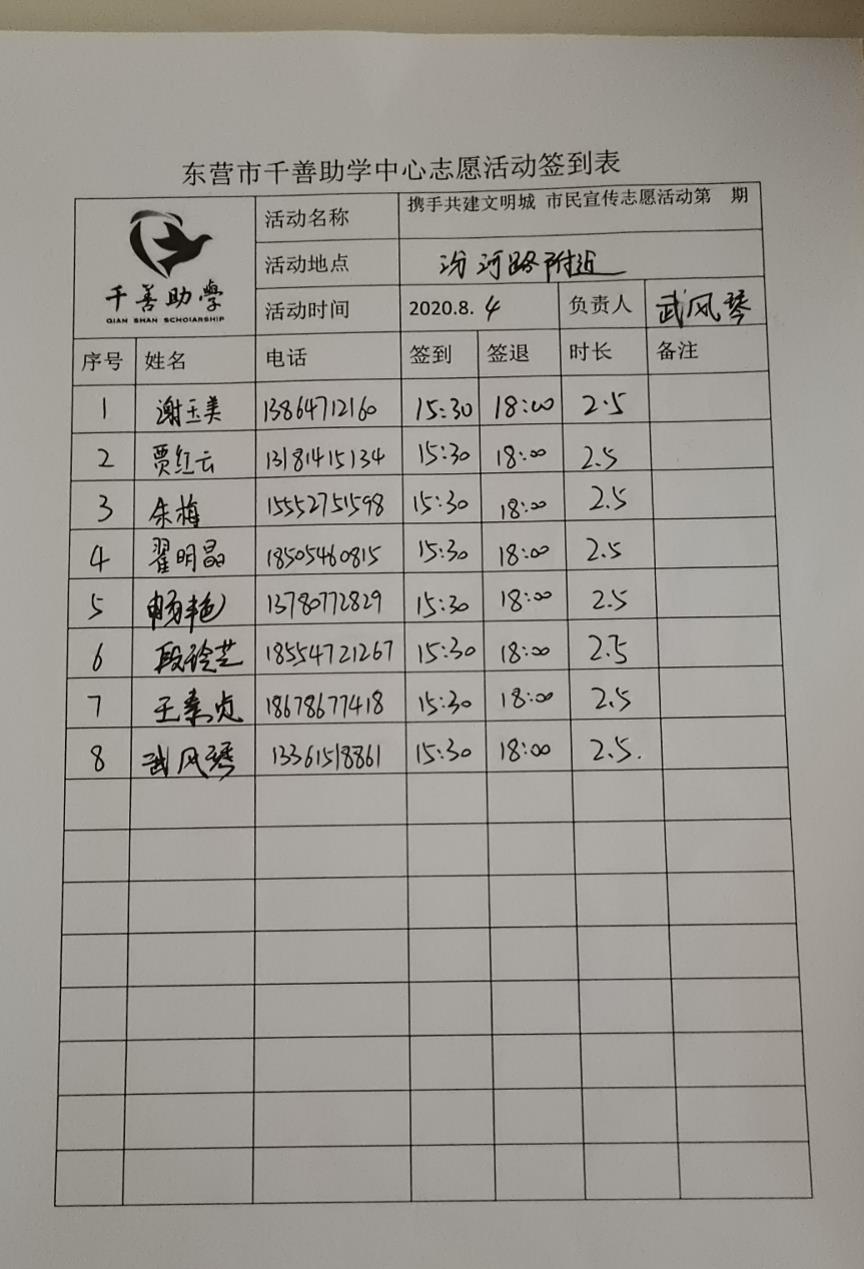 东营市千善助学中心志愿活动签到表
千善助學
QIAN SHAN SCHOIARSHIP
活动名称 携手共建文明城 市民宣传志愿活动第 期
活动地点 汾河路附近
活动时间 2020.8.4 负责人 武风琴
序号 姓名 电话 签到 签退 时长 备注
1 谢玉美 13864712160 15:30 18:00 2.5
2 贾红云 13181415134 15:30 18:00 2.5
3 余梅 15552751598 15:30 18:00 2.5
4 翟明晶 18505460815 15:30 18:00 2.5
5 畅艳 13780772829 15:30 18:00 2.5
6 段玲芝 18554721267 15:30 18:00 2.5
7 王素贞 18678677418 15:30 18:00 2.5
8 武风琴 13361518861 15:30 18:00 2.5.